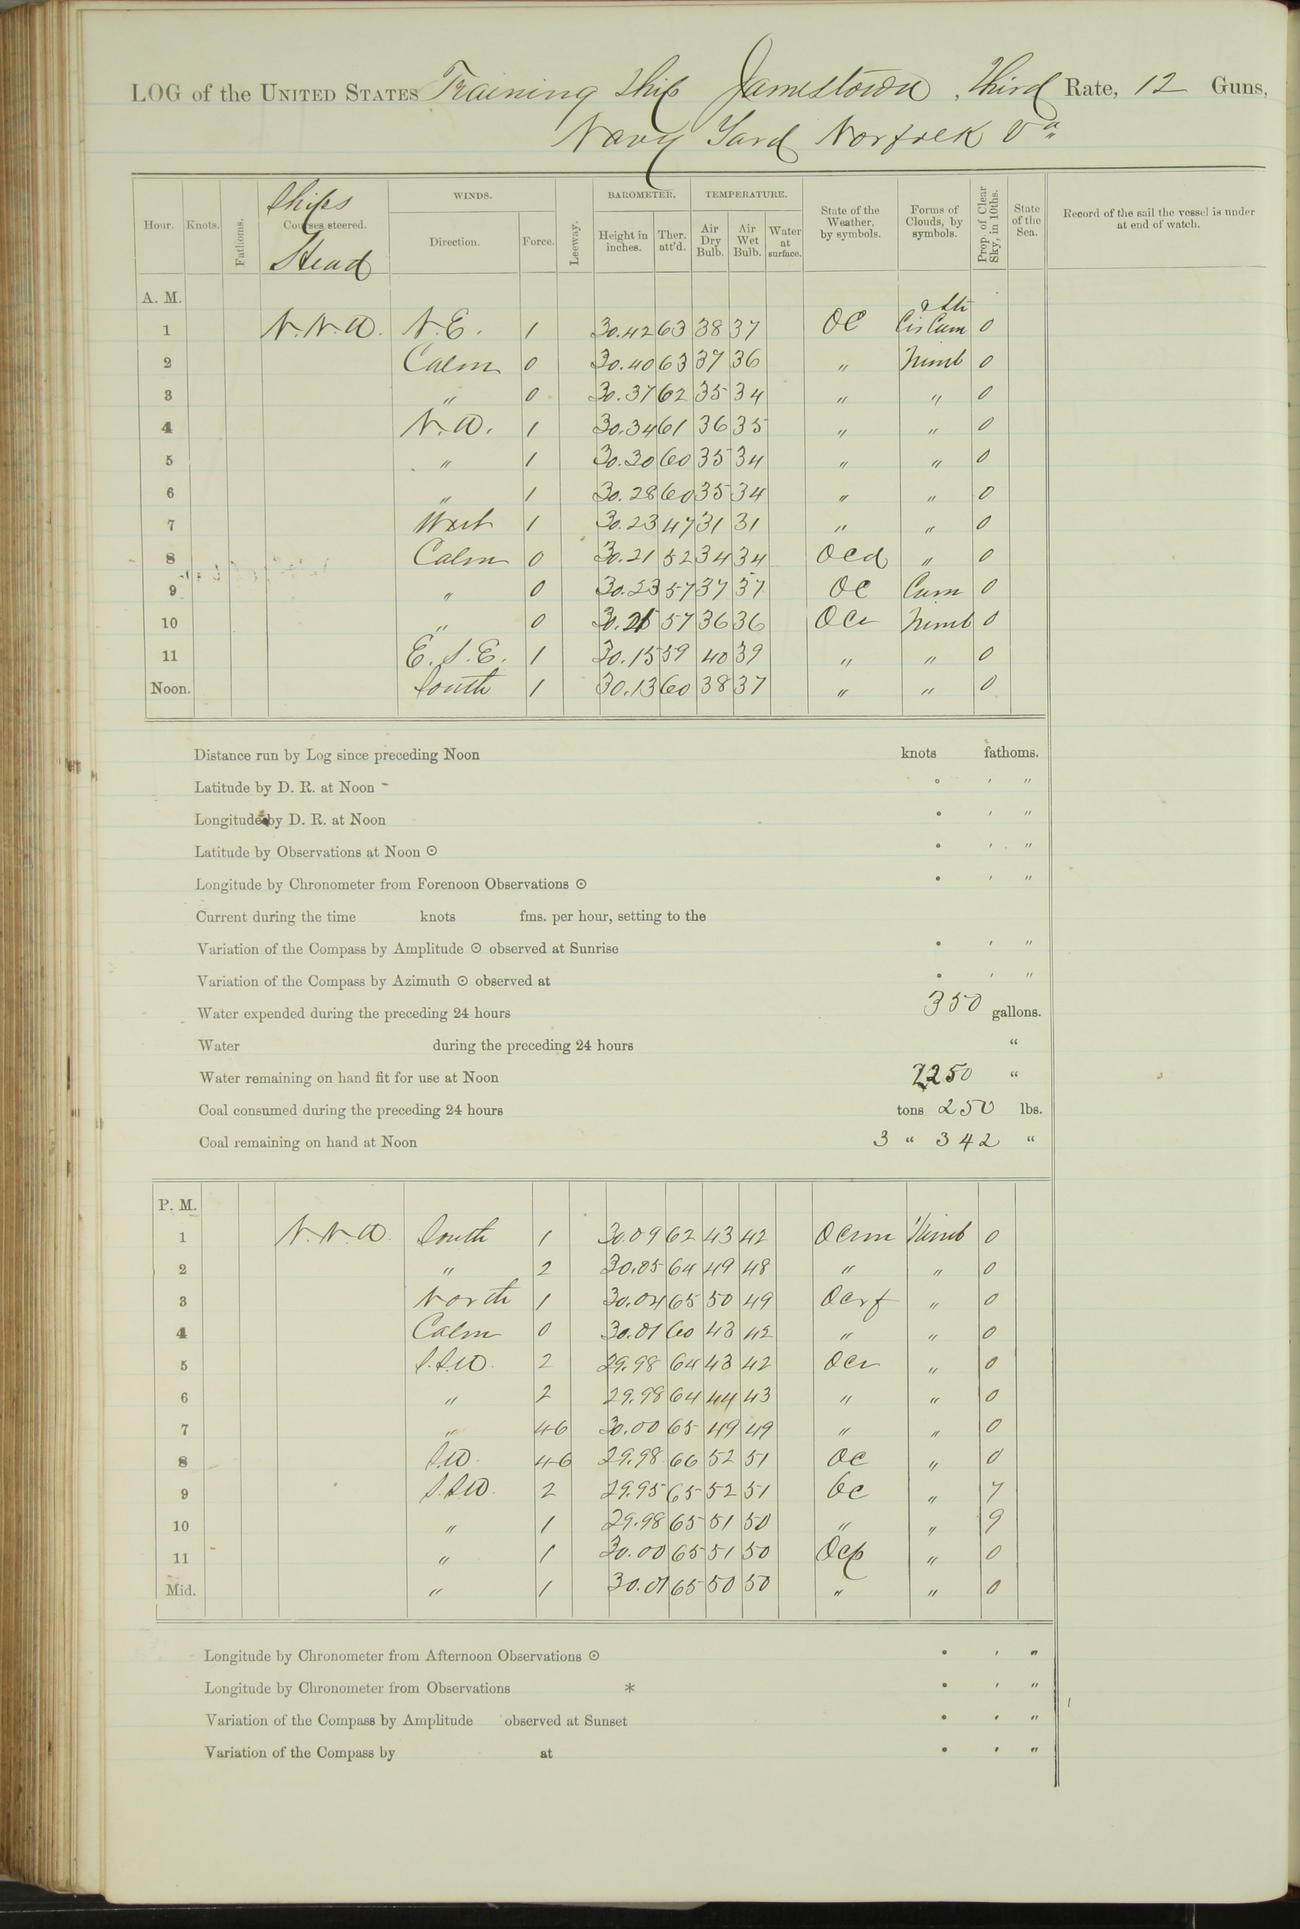 LOG of the UNITED STATES Training Ship Jamestown, Third Rate, 12 Guns,
Navy Yard Norfolk Va
Hour. Knots. Fathoms. Courses steered. Ships Head WINDS. Direction. Force. Leeway. BAROMETER. Height in inches. Ther. att'd. TEMPERATURE. Air Dry Bulb. Air Wet Bulb. Water at surface. State of the Weather, by symbols. Forms of Clouds, by symbols. Prop. of Clear Sky, in 10ths. State of the Sea. Record of the sail the vessel is under at end of watch.
A. M.
1 N.N.W. N.E. 1 30.42 63 38 37 OC Cis Cum 0
2 Calm 0 30.40 63 37 36 " Nimb 0
3 " 0 30.37 62 35 34 " " 0
4 N.W. 1 30.34 61 36 35 " " 0
5 " 1 30.30 60 35 34 " " 0
6 " 1 30.28 60 35 34 " " 0
7 West 1 30.23 47 31 31 " " 0
8 Calm 0 30.21 52 34 34 Ocd " 0
9 " 0 30.23 57 37 37 OC Cum 0
10 " 0 57 36 36 OCr Nimb 0
11 E.S.E. 1 30.15 59 40 39 " " 0
Noon. South 1 30.13 60 38 37 " " 0
Distance run by Log since preceding Noon knots fathoms.
Latitude by D. R. at Noon ° ' "
Longitude by D. R. at Noon ° ' "
Latitude by Observations at Noon ⊙ ° ' "
Longitude by Chronometer from Forenoon Observations ⊙ ° ' "
Current during the time knots fms. per hour, setting to the
Variation of the Compass by Amplitude ⊙ observed at Sunrise ° ' "
Variation of the Compass by Azimuth ⊙ observed at ° ' "
Water expended during the preceding 24 hours 350 gallons.
Water during the preceding 24 hours "
Water remaining on hand fit for use at Noon 2250 "
Coal consumed during the preceding 24 hours tons 250 lbs.
Coal remaining on hand at Noon 3 " 342 "
P. M.
1 N.N.W. South 1 30.09 62 43 42 Ocrm Nimb 0
2 " 2 30.05 64 49 48 " " 0
3 North 1 30.04 65 50 49 Ocrf " 0
4 Calm 0 30.01 60 43 42 " " 0
5 S.S.W. 2 29.98 64 43 42 Ocr " 0
6 " 2 29.98 64 44 43 " " 0
7 " 4-6 30.00 65 49 49 " " 0
8 S.W. 4-6 29.98 66 52 51 OC " 0
9 S.S.W. 2 29.95 65 52 51 bc " 7
10 " 1 29.98 65 51 50 " " 9
11 " 1 30.00 65 51 50 Ocp " 0
Mid. " 1 30.01 65 50 50 " " 0
Longitude by Chronometer from Afternoon Observations ⊙ ° ' "
Longitude by Chronometer from Observations * ° ' "
Variation of the Compass by Amplitude observed at Sunset ° ' "
Variation of the Compass by at ° ' "